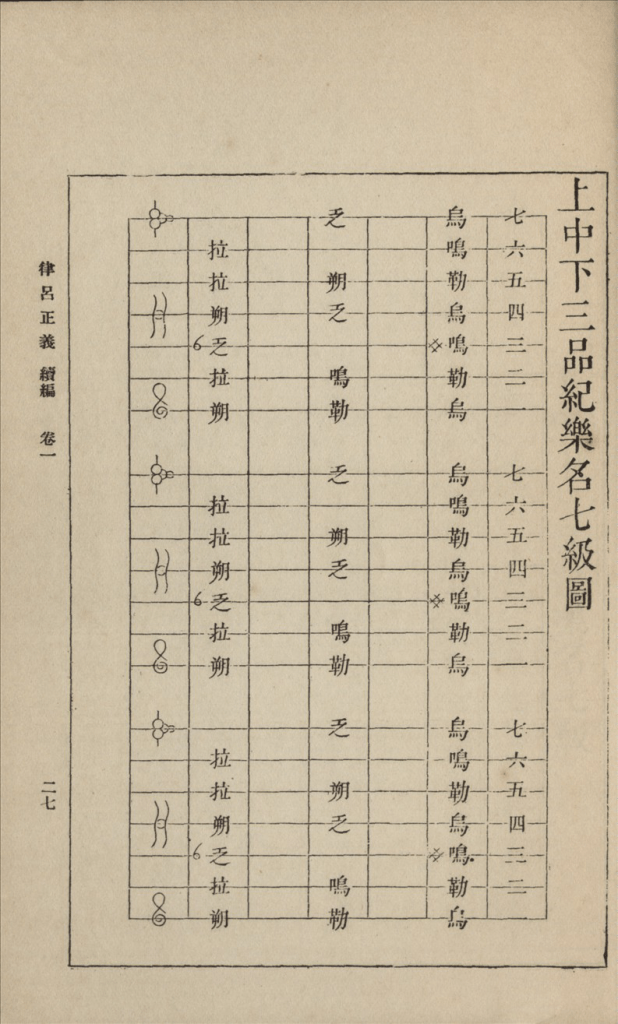 上中下三品紀樂名七級圖
七六五四三二一 七六五四三二一 七六五四三二一
烏鳴勒烏鳴勒烏 烏鳴勒烏鳴勒烏 烏鳴勒烏鳴勒烏
乏朔乏鳴勒 乏朔乏鳴勒 乏朔乏鳴勒
拉拉朔6乏拉朔 拉拉朔6乏拉朔 拉拉朔6乏拉朔
律呂正義 續編 卷一 二七